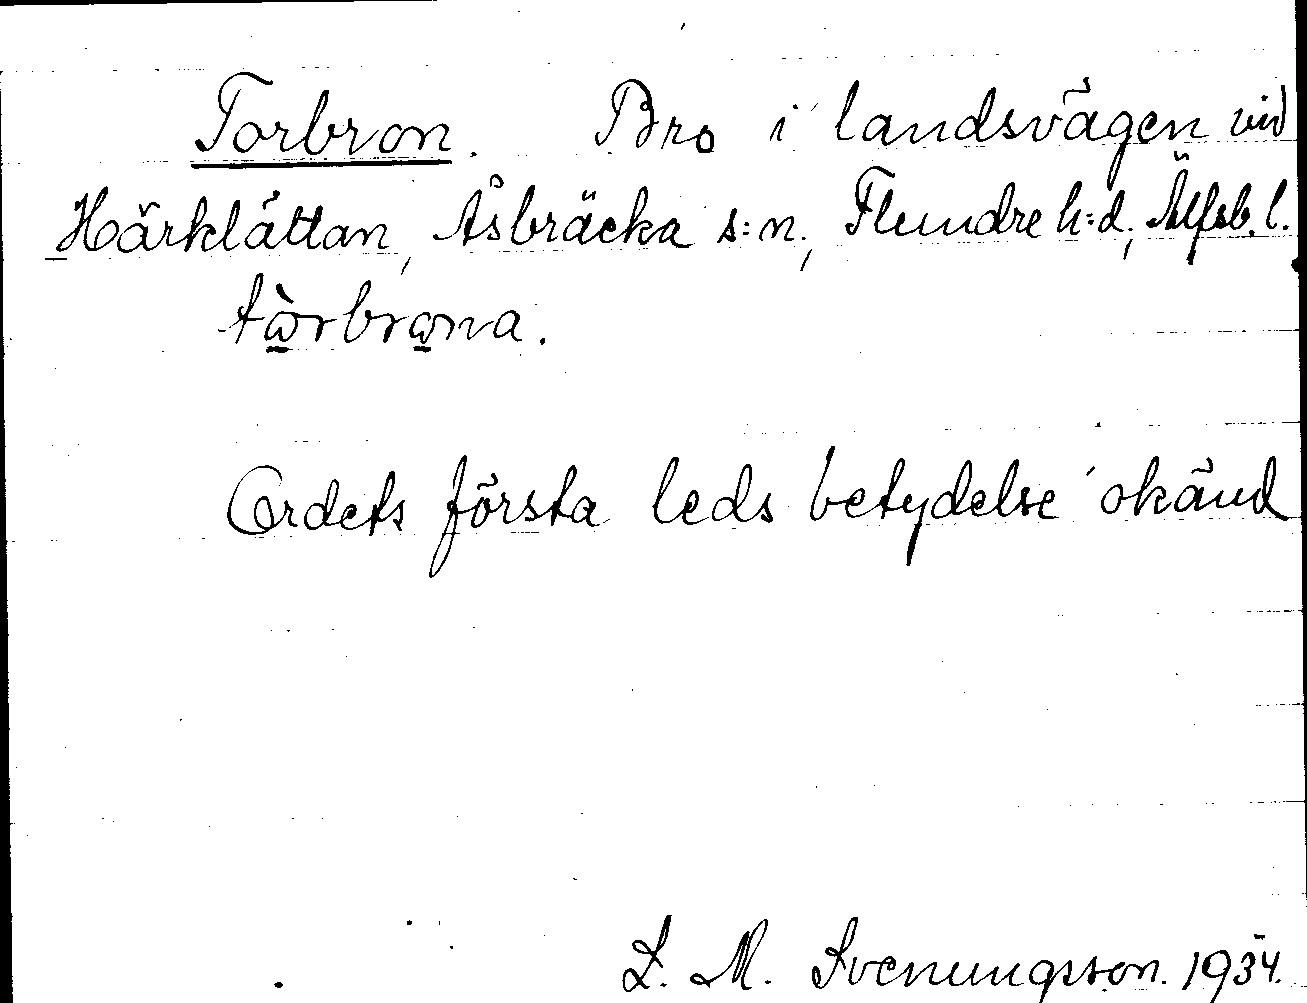 Torbron. Bro i landsvägen vid
Härklättan, Åsbräcka s:n, Flundre h:d, Älfsb. l.
tòrbrona.
Ordets första leds betydelse okänd
L. M. Svenungsson. 1934.